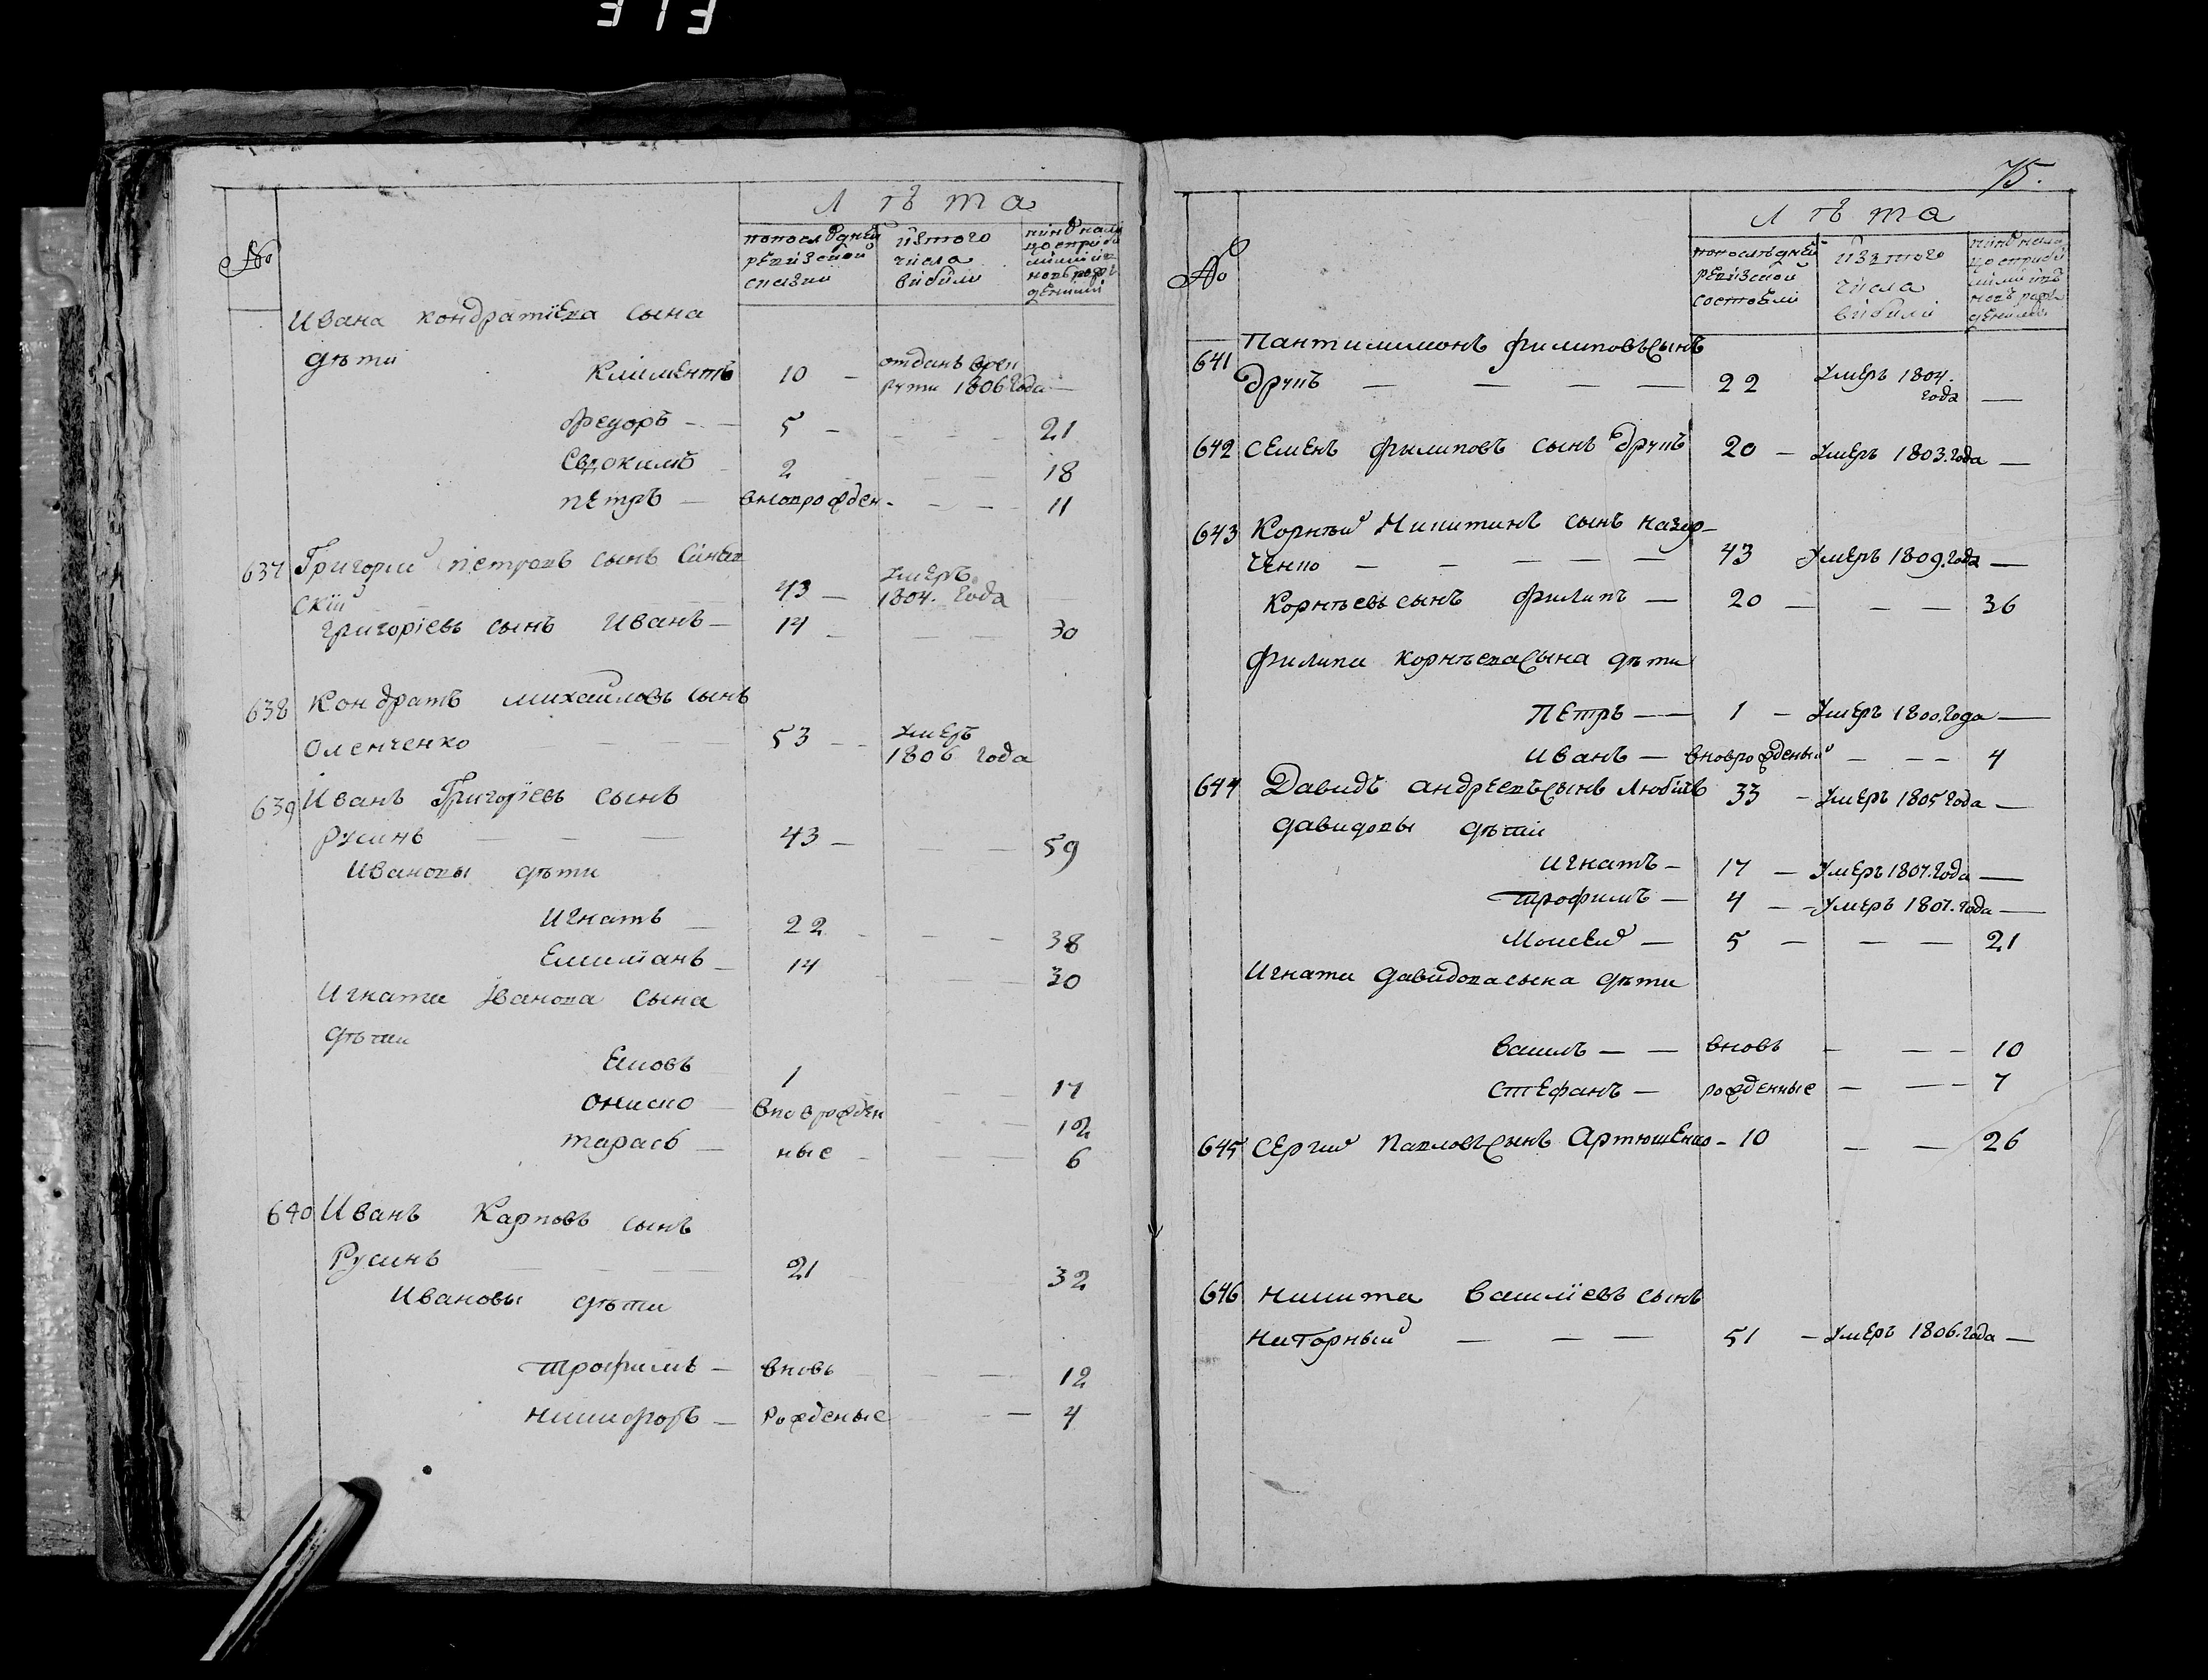 №
Лѣта
по последней
ревизской
сказки
изтого
числа
вибили
Ивана кондратїева сына
дѣти
Климентъ 10 — отданъ врек
рути 1806 года —
Федоръ — 5 — — — — 21
Евдокимъ 2 — — — 18
петръ — вноврожден — — — 11
637 Григорий петровъ сынъ Синѣв
ский 43 — умеръ
1804. года
григорїевъ сынъ Иванъ — 14 — — — 30
638 Кондратъ михайловъ сынъ
Оленченко — — 53 — — умеръ
1806 года
639 Иванъ Григорїевъ сынъ
русинъ — — — 43 — — — 59
Ивановы дѣти
Игнатъ — 22 — — — 38
Емилианъ — 14 — — 30
Игната Iванова сына
дѣти
Яковъ 1 — — 17
Ониско — вноврожден — 12
тарасъ — ные — — — 6
640 Иванъ Карповъ сынъ
Русинъ — — — 21 — 32
Ивановы дѣти
трофимъ — вновь — — — 12
никифоръ — рожденые — — — 4
75.
№
Лѣта
по последней
ревизской
состоели
изтого
числа
вибили
641 Пантилимонъ филиповъ сынъ
друкъ — — — — 22 умеръ 1804.
года —
642 Семенъ филиповъ сынъ друкъ 20 — умеръ 1803. года —
643 Корнѣй Никитинъ сынъ назар-
ченко — — — — — 43 умеръ 1809. года —
Корнѣевъ сынъ филипъ — 20 — — — 36
филипа корнѣева сына дѣти
Петръ — — 1 — умеръ 1800. года —
иванъ — вноврожденый — — — 4
644 Давидъ андреевъ сынъ любичъ 33 — умеръ 1805 года —
давидовы дѣти
игнатъ — 17 — умеръ 1807. года —
трофимъ — 4 — — умеръ 1807. года —
Моисей — 5 — — — 21
Игната давидова сына дѣти
василь — — вновь — — — 10
стефанъ — рожденные — — — 7
645 Сергий Павловъ сынъ Артюшенко — 10 — — 26
646 никита василїевъ сынъ
нагорный — — — 51 — умеръ 1806. года —